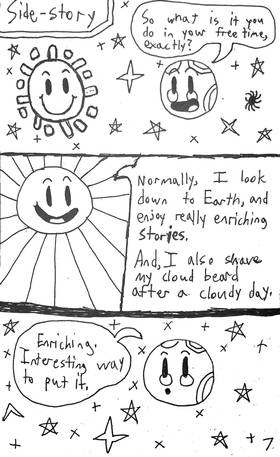 Side-story
So what is it you
do in your free time,
exactly?
Normally, I look
down to Earth, and
enjoy really enriching
stories.
And, I also shave
my cloud beard
after a cloudy day.
Enriching.
Interesting way
to put it.